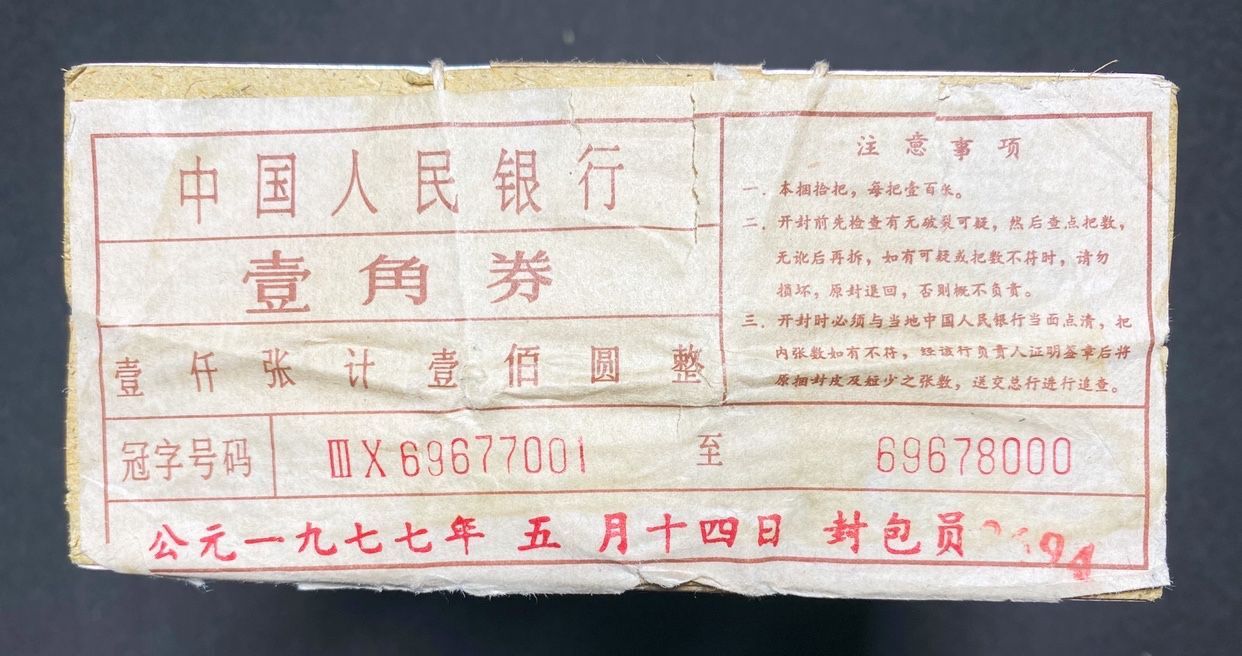 中国人民银行
壹角券
壹仟张计壹佰圆整
注意事项
一．本捆拾把，每把壹百张。
二．开封前先检查有无破裂可疑，然后查点把数，
无讹后再拆，如有可疑或把数不符时，请勿
损坏，原封退回，否则概不负责。
三．开封时必须与当地中国人民银行当面点清，把
内张数如有不符，经该行负责人证明签章后将
原捆封皮及短少之张数，送交总行进行追查。
冠字号码 ⅢX69677001 至 69678000
公元一九七七年 五 月十四日 封包员